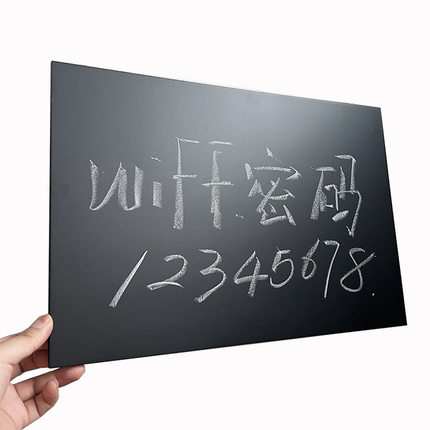 wiFF密码
12345678.